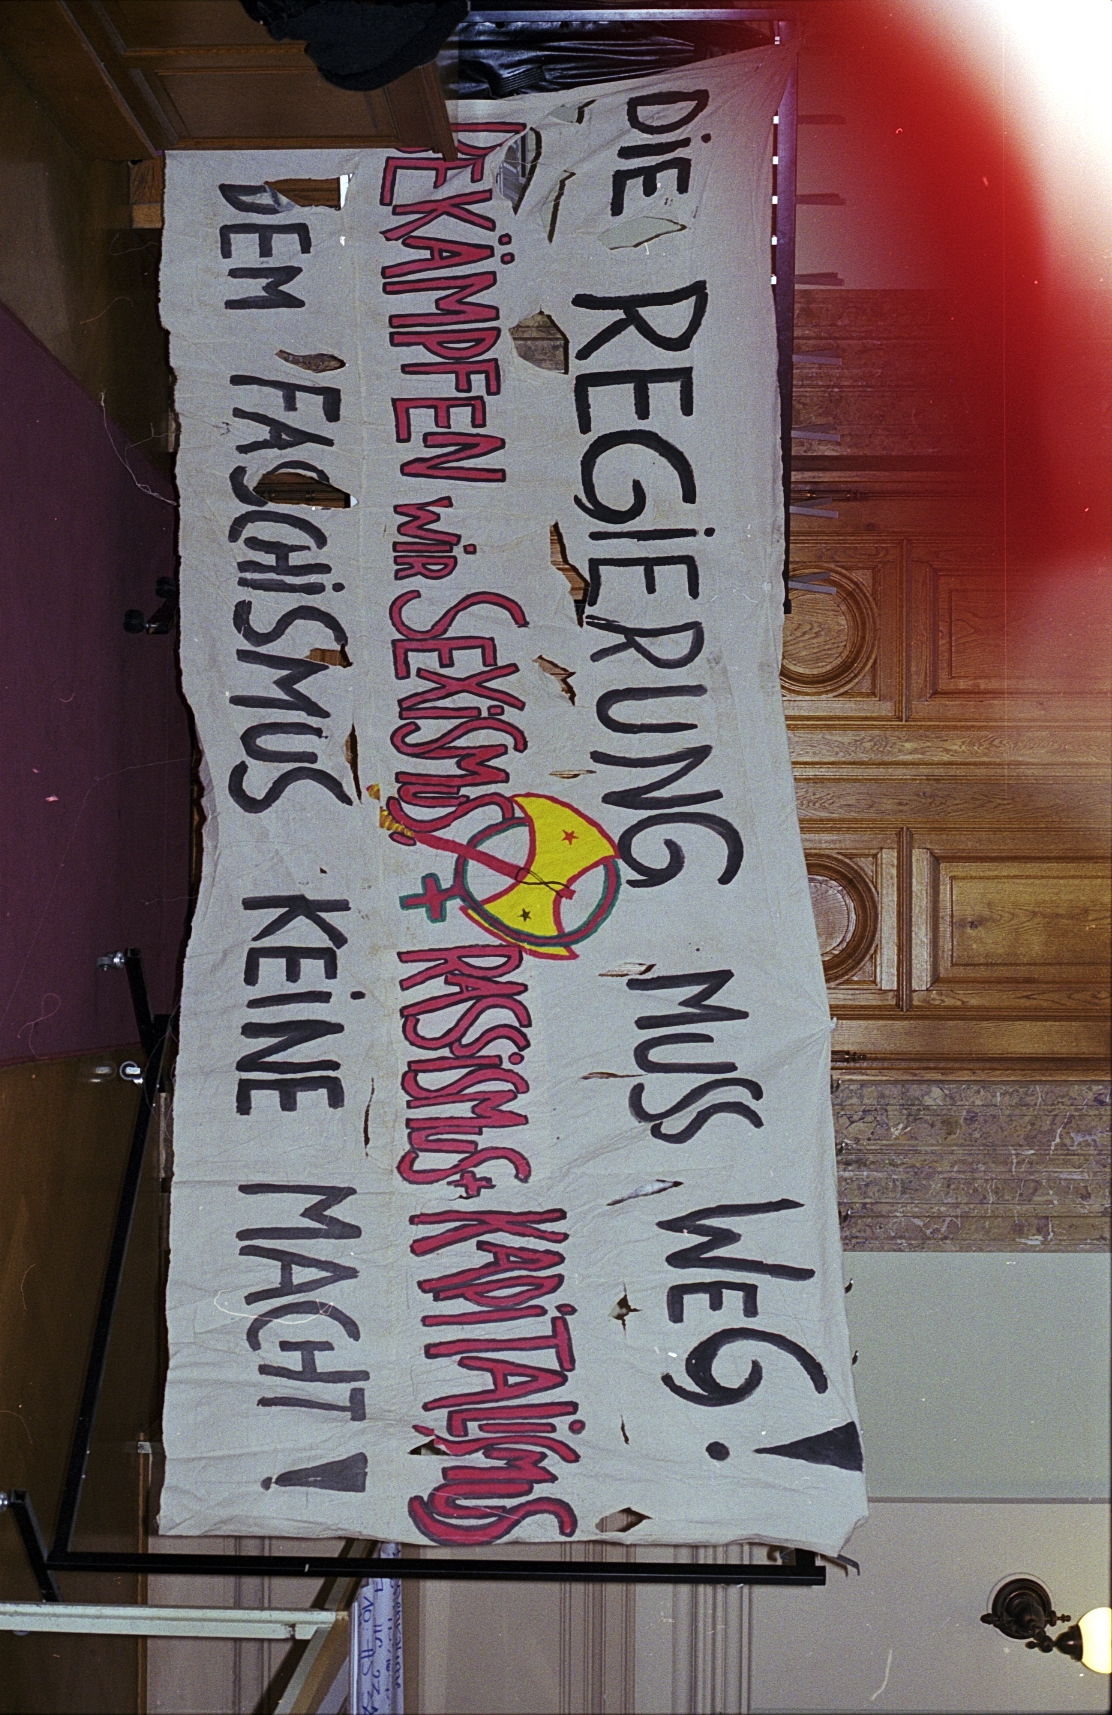 DIE REGIERUNG MUSS WEG!
BEKÄMPFEN WIR SEXISMUS + RASSISMUS + KAPITALISMUS
DEM FASCHISMUS KEINE MACHT!